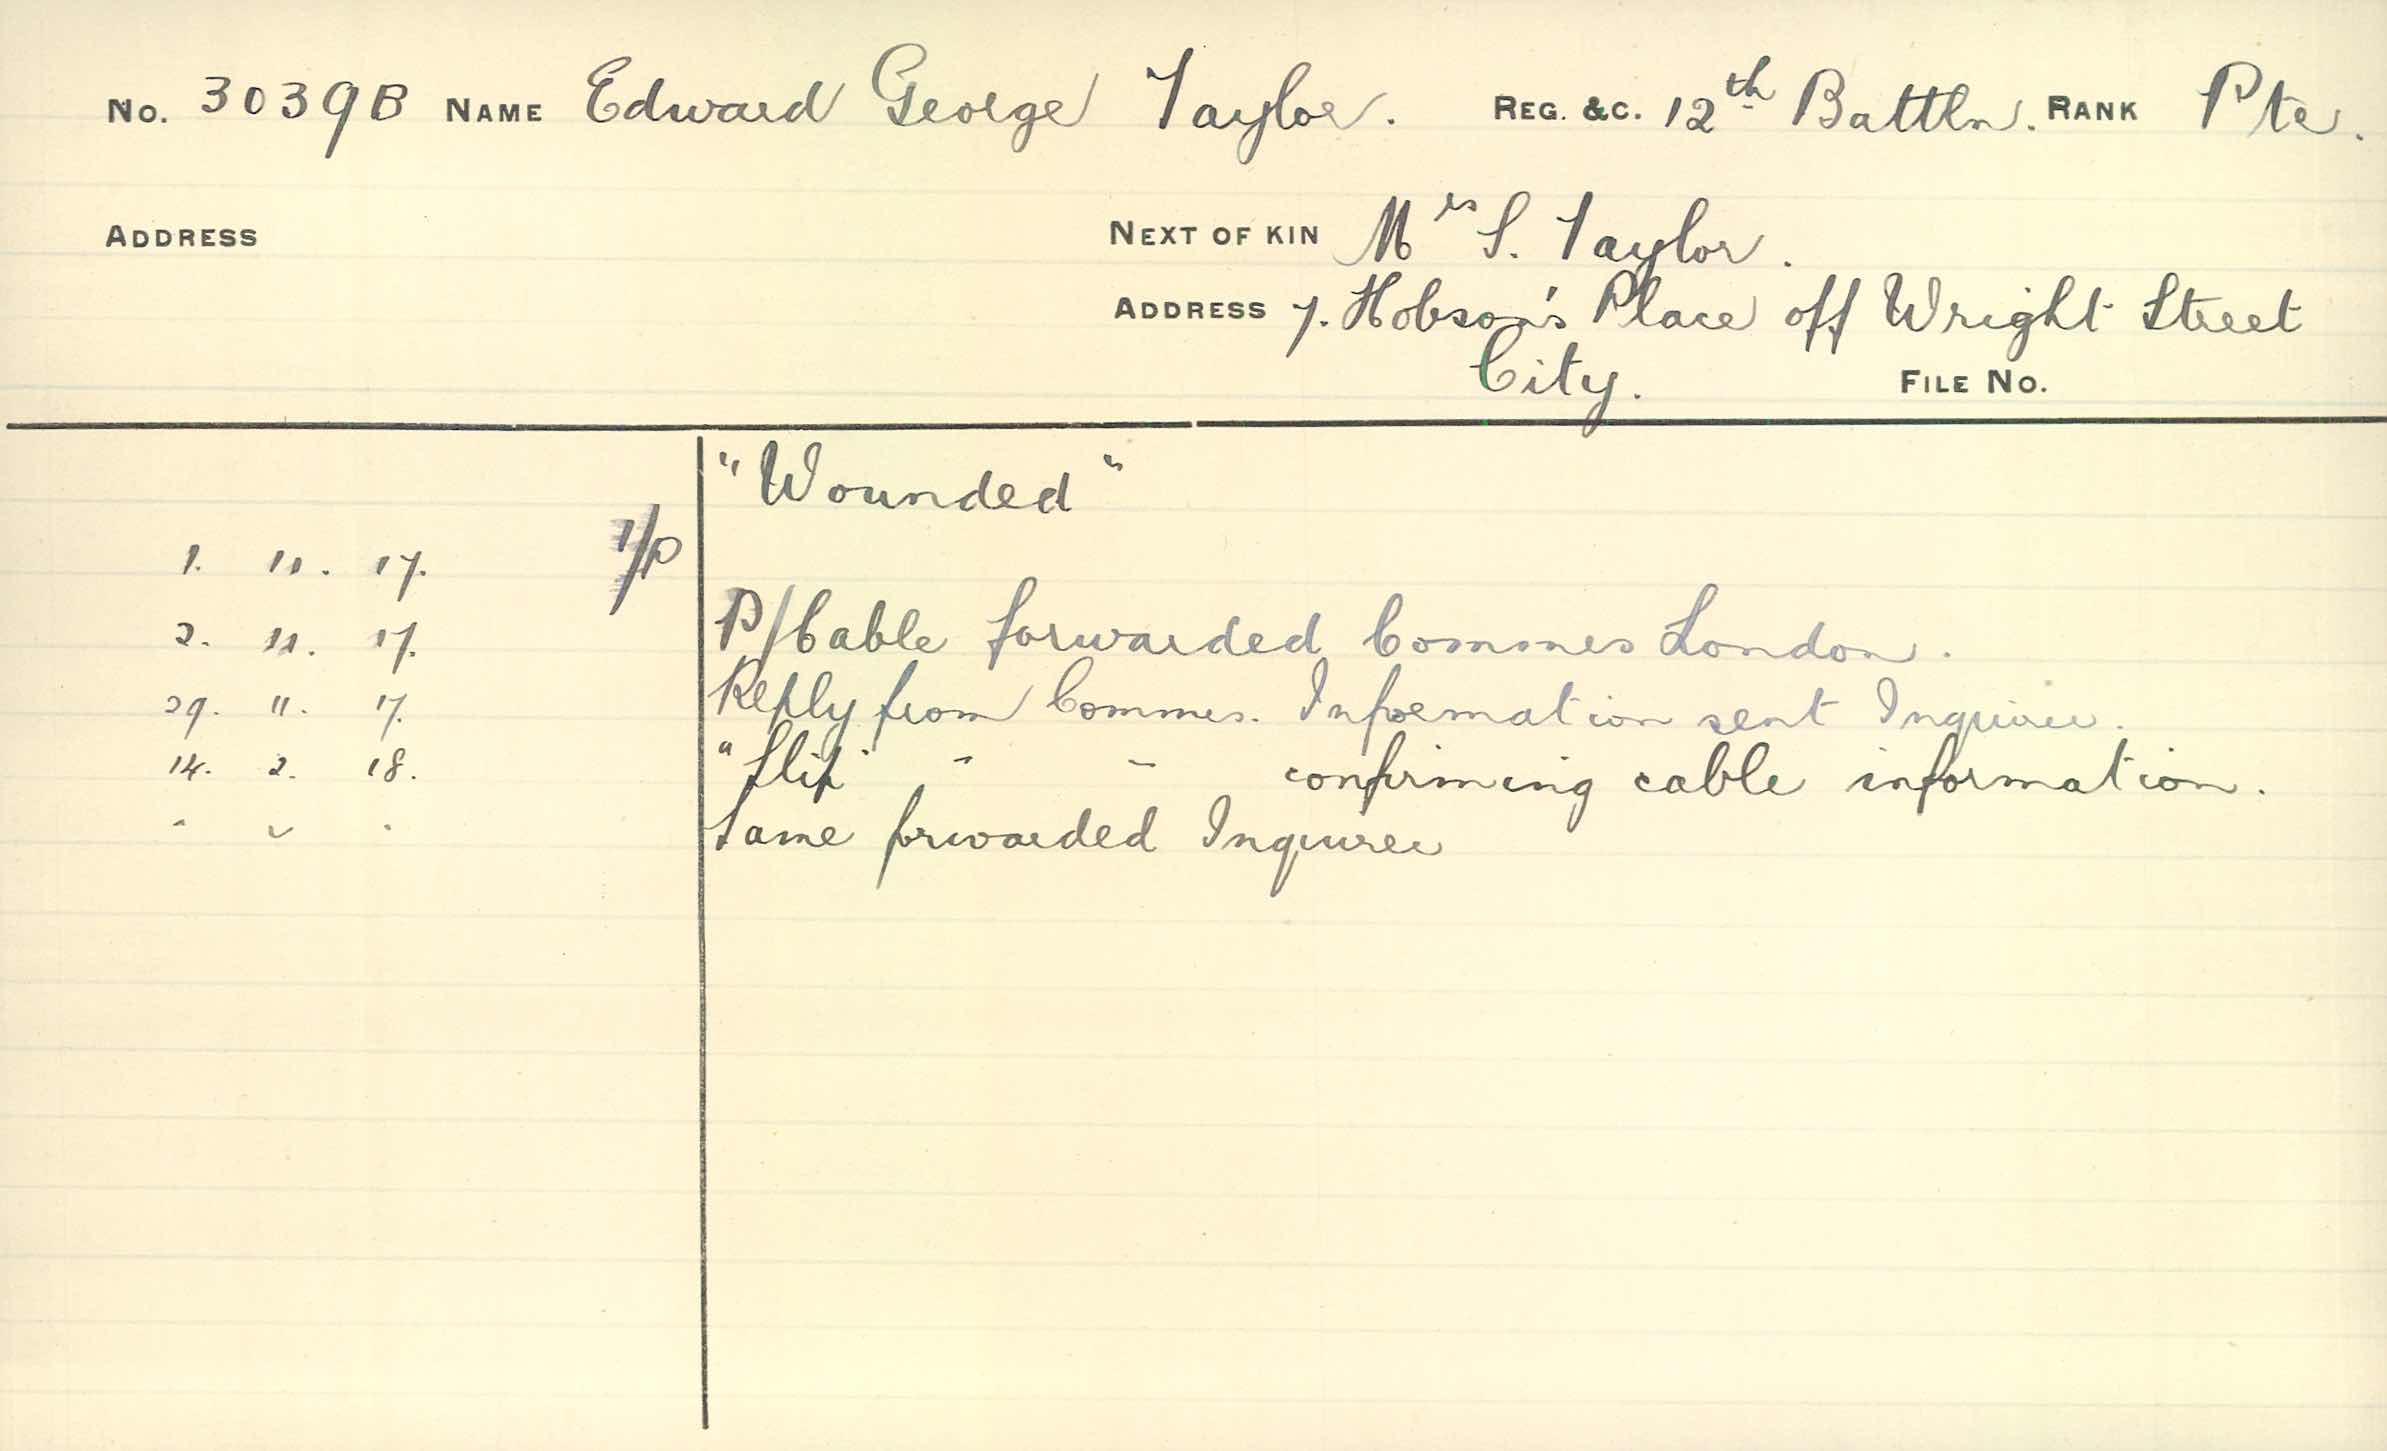 No. 3039B NAME Edward George Taylor. REG. &C. 12th Battln. RANK Pte.
ADDRESS NEXT OF KIN Mrs S. Taylor.
ADDRESS 7. Hobson's Place off Wright Street
City. FILE NO.
"Wounded"
1. 11. 17. I/P
2. 11. 17. P/Cable forwarded Commrs London.
29. 11. 17. Reply from Commrs. Information sent Inquirer.
14. 2. 18. "Slip" " " confirming cable information.
" " " Same forwarded Inquirer